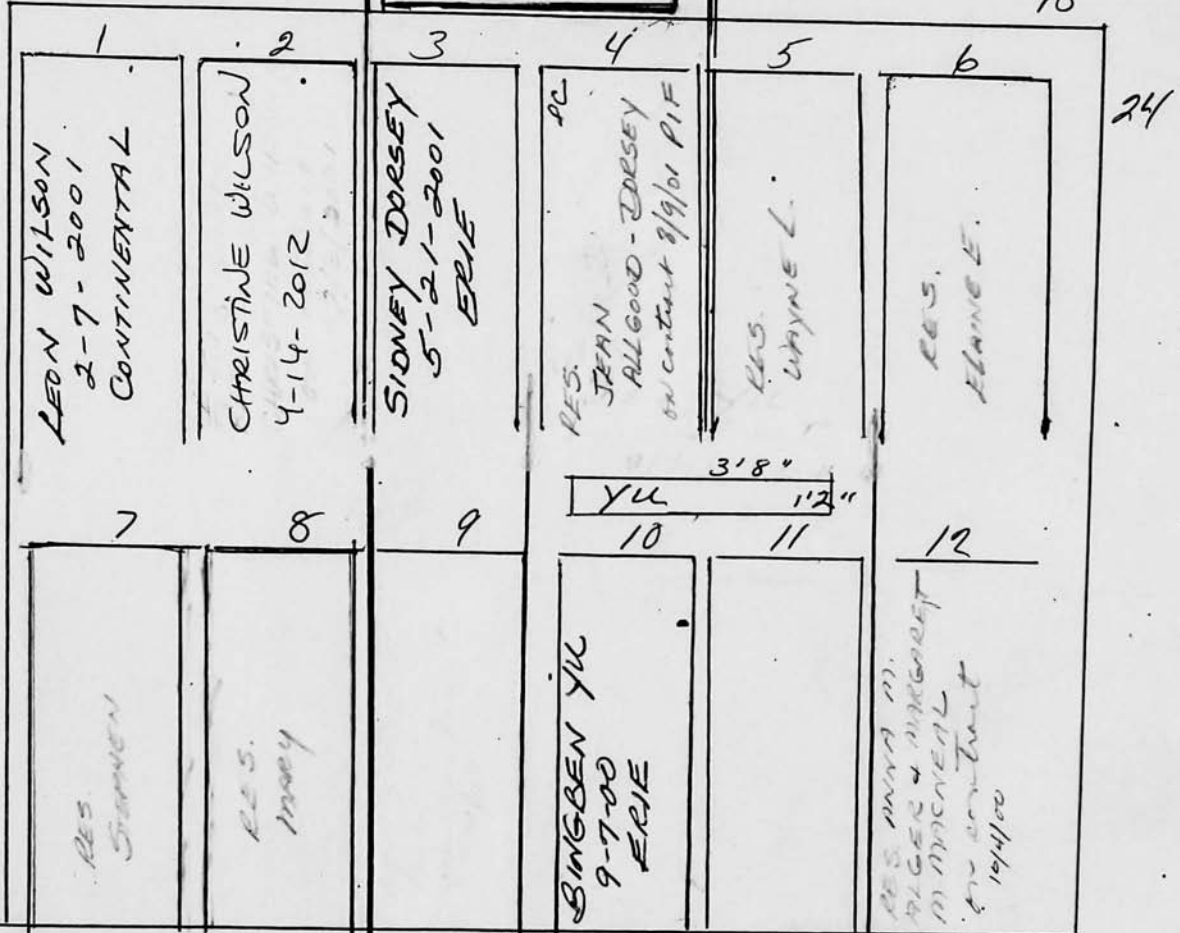 10
24
1
LEON WILSON
2-7-2001
CONTINENTAL
2
CHRISTINE WILSON
4-14-2012
3
SIDNEY DORSEY
5-21-2001
ERIE
4
PC
RES.
JEAN
ALLGOOD-DORSEY
on contract 8/9/01 PIF
5
RES.
WAYNE L.
6
RES.
ELAINE E.
YU 3'8" 1'2"
7
RES
STEPHEN
8
RES.
MARY
9
10
BINGBEN YU
9-7-00
ERIE
11
12
RES. ANNA M.
ALGER & MARGARET
M MACNEAL
on contract
10/4/00